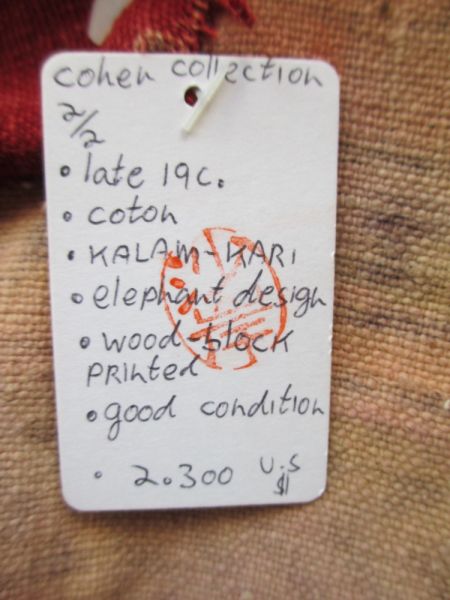 cohen collection
2/2
• late 19c.
• coton
• KALAM-KARI
• elephant design
• wood-block
PRinted
• good condition
• 2.300 U.S $